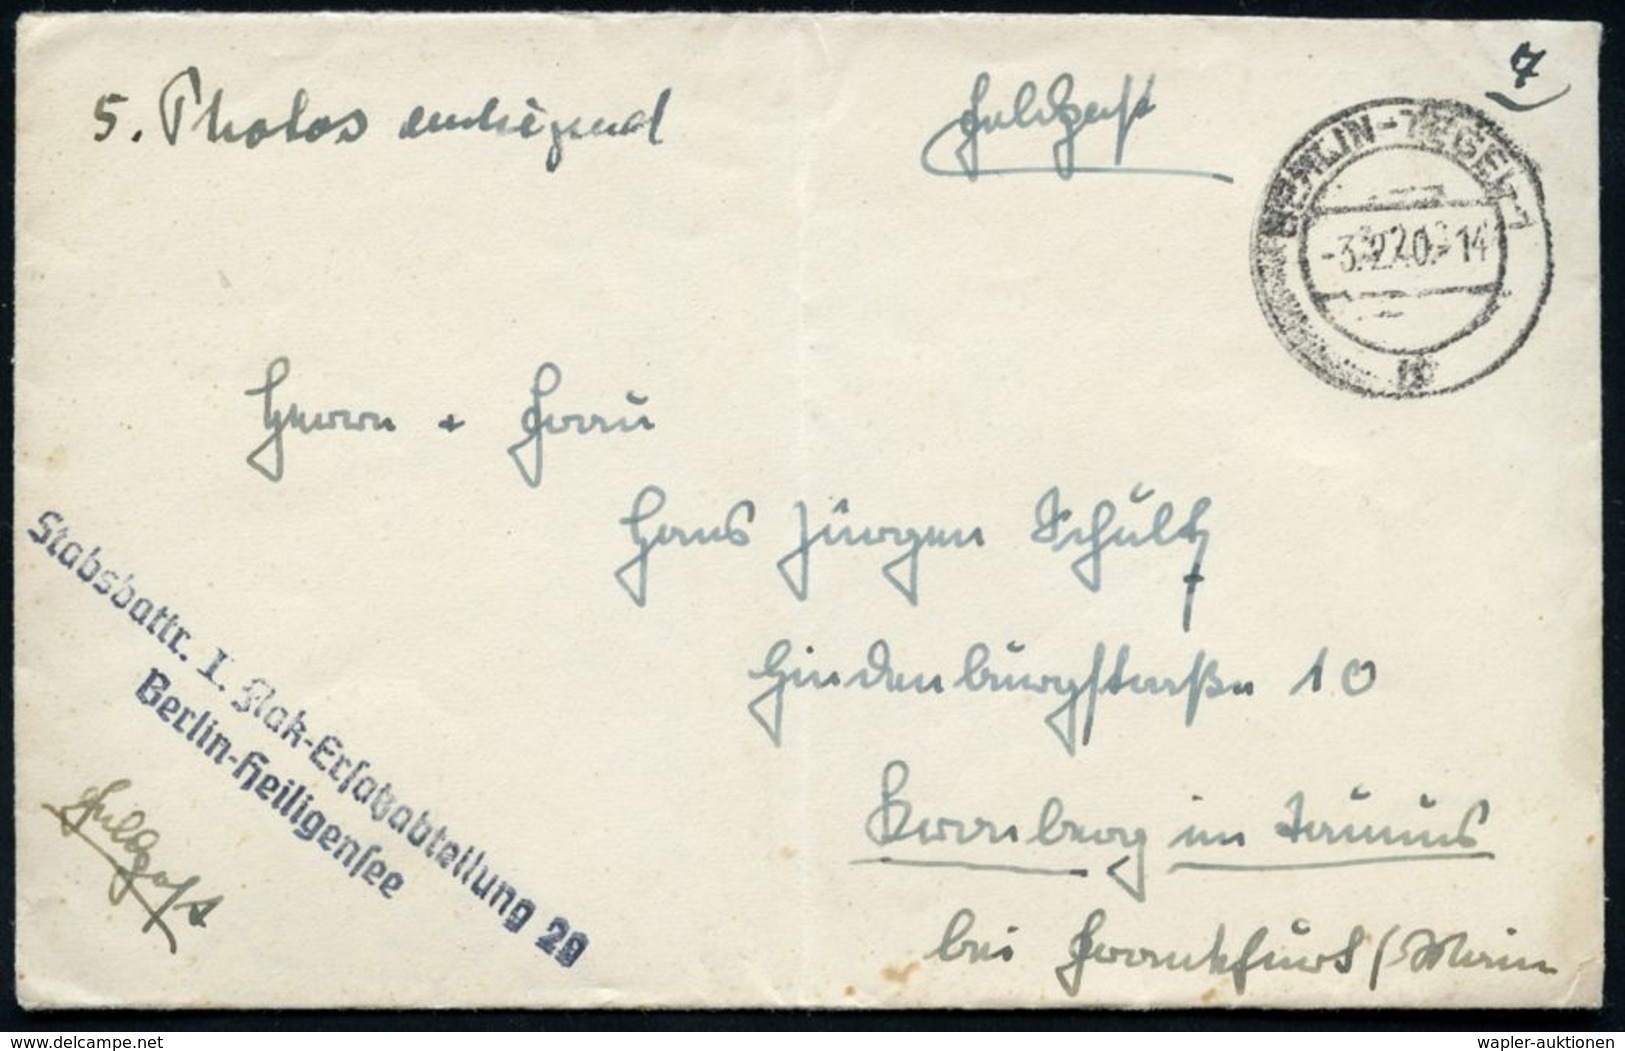 7
5. Photos einliegend
Feldpost
BERLIN-TEGEL 1
-3.2.40.-14
Herrn + Frau
Hans Jürgen Schultz
Hindenburgstraße 10
Kronberg im Taunus
bei Frankfurt / Main
Stabsbattr. I. Flak-Ersatzabteilung 29
Berlin-Heiligensee
Feldpost
delcampe.net
wapler-auktionen